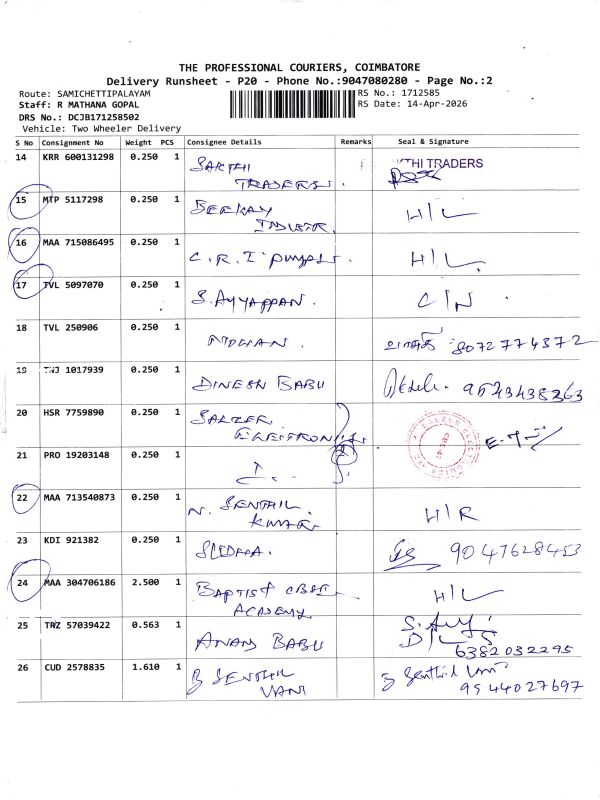 THE PROFESSIONAL COURIERS, COIMBATORE
Delivery Runsheet - P20 - Phone No.:9047080280 - Page No.:2
Route: SAMICHETTIPALAYAM RS No.: 1712585
Staff: R MATHANA GOPAL RS Date: 14-Apr-2026
DRS No.: DCJB171258502
Vehicle: Two Wheeler Delivery
S No Consignment No Weight PCS Consignee Details Remarks Seal & Signature
14 KRR 600131298 0.250 1 SAKTHI THI TRADERS
TRADERS.
15 MTP 5117298 0.250 1 BEEKAY H/L
16 MAA 715086495 0.250 1 C.R.I PUMPS. H/L.
17 TVL 5097070 0.250 1 S.AYYAPPAN. C/N
18 TVL 250906 0.250 1 MOHAN. 8072774372
19 TNJ 1017939 0.250 1 DINESH BABU
20 HSR 7759890 0.250 1 SALZER
ELECTRONICS
21 PRO 19203148 0.250 1
22 MAA 713540873 0.250 1 N. SENTHIL H/R
KUMAR
23 KDI 921382 0.250 1 SUDHA. 9047628453
24 MAA 304706186 2.500 1 BAPTIST CBSE H/L
ACADEMY
25 TRZ 57039422 0.563 1 ANAND BABU
6382032295
26 CUD 2578835 1.610 1 B SENTHIL B Senthil Vani
VANI 9944027697